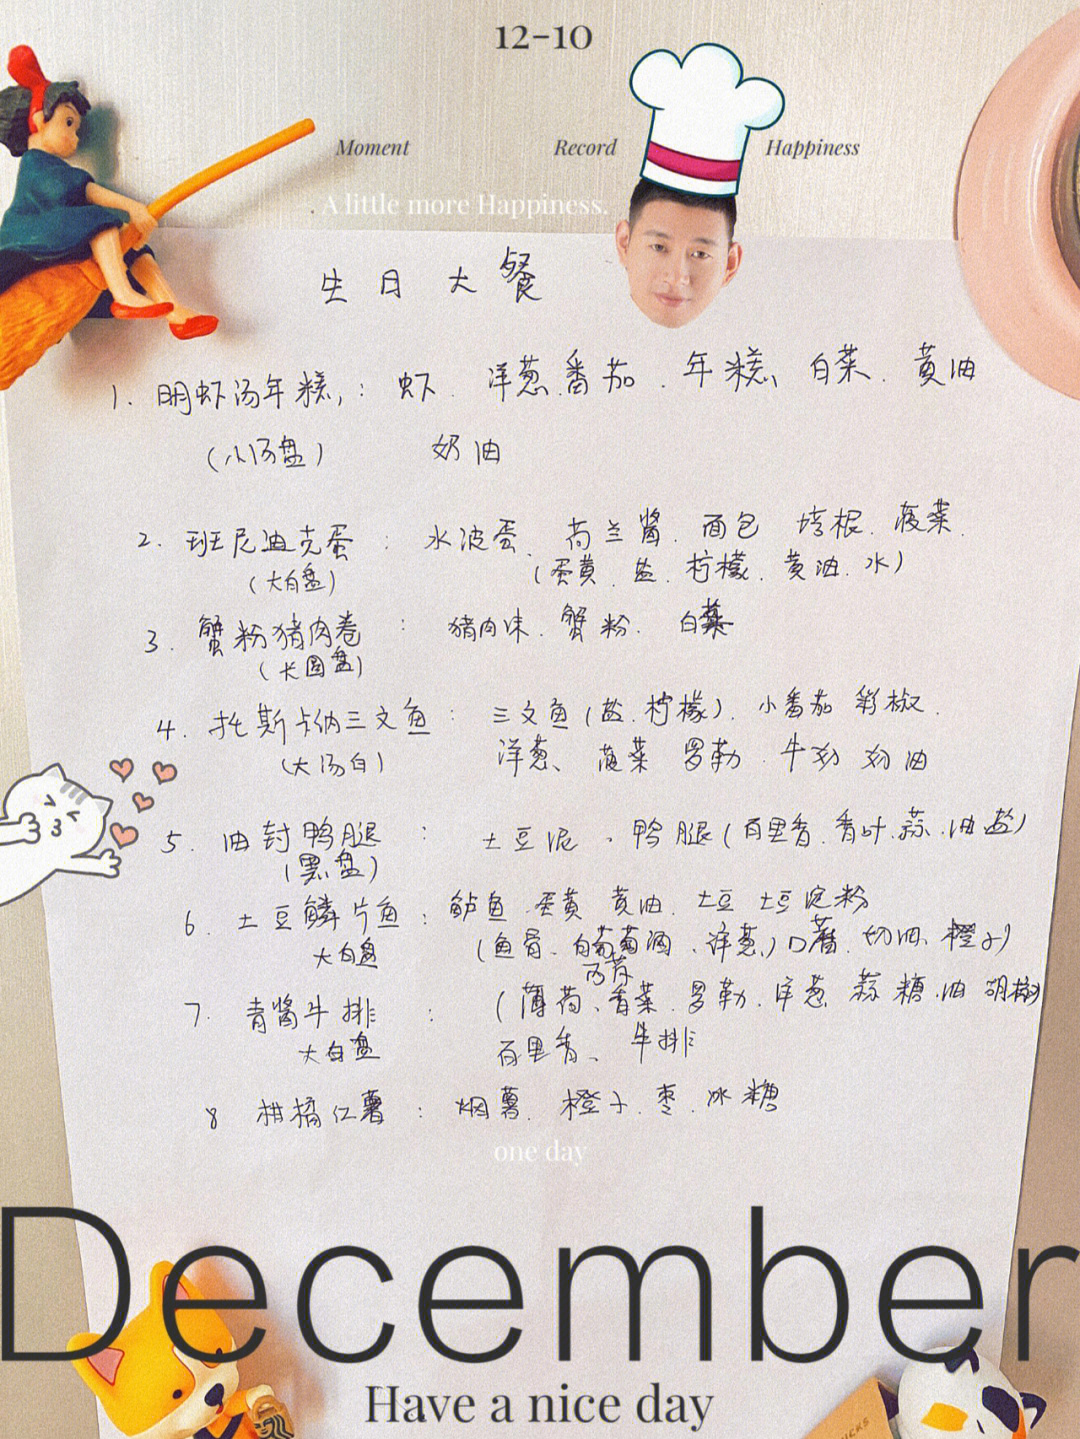 12-10
Moment Record Happiness
A little more Happiness.
生日大餐
1. 明虾汤年糕: 虾. 洋葱.番茄.年糕、白菜.黄油
(小汤盘) 奶油
2. 班尼迪克蛋. 水波蛋、荷兰酱.面包 培根.菠菜.
(大白盘) (蛋黄.盐.柠檬.黄油.水)
3. 蟹粉猪肉卷: 猪肉味.蟹粉. 白菜
(大圆盘)
4. 托斯卡纳三文鱼: 三文鱼(盐.柠檬).小番茄 彩椒.
(大汤白) 洋葱、菠菜 罗勒.牛奶 奶油
5. 油封鸭腿: 土豆泥、鸭腿(百里香.香叶.蒜.油盐)
(黑盘)
6. 土豆鳞片鱼: 鲈鱼.蛋黄 黄油.土豆 土豆淀粉
大白盘 (鱼骨、白葡萄酒、洋葱、)口蘑. 奶油、橙子)
西芹
7. 青酱牛排: (薄荷、香菜.罗勒.洋葱 蒜 糖.油 胡椒)
大白盘 百里香、牛排
8 柑橘红薯: 烟薯.橙子.枣.冰糖
one day
December
Have a nice day